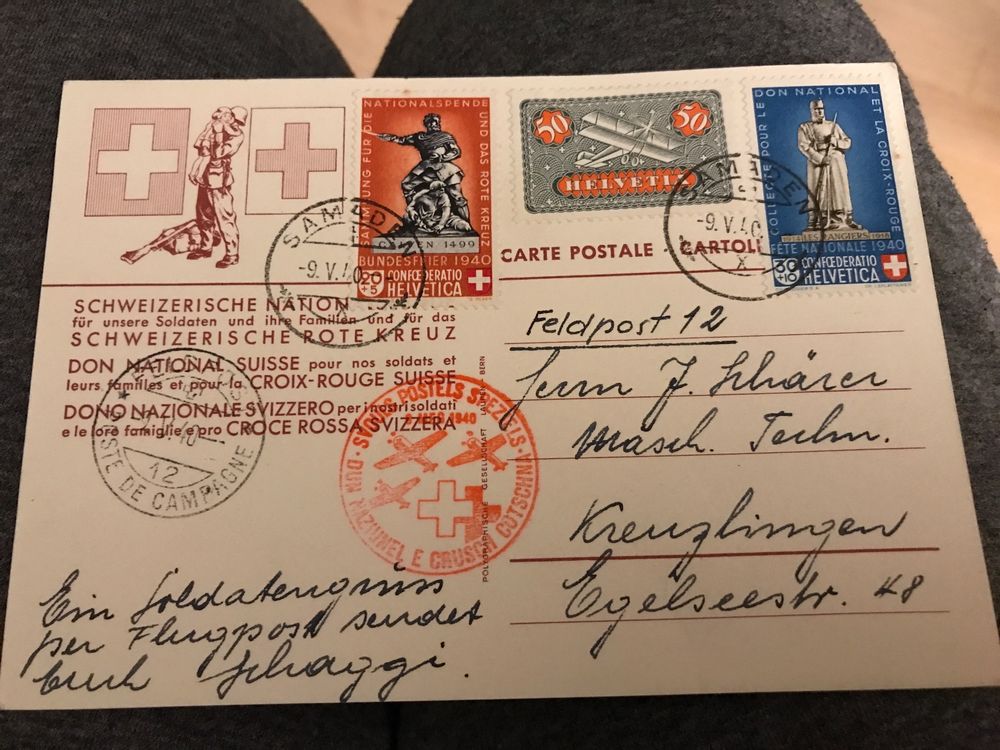 SAMMLUNG FÜR DIE NATIONALSPENDE UND DAS ROTE KREUZ
CALVEN 1499
BUNDESFEIER 1940
20+5 CONFŒDERATIO HELVETICA
50 50
HELVETIA
COLLECTE POUR LE DON NATIONAL ET LA CROIX-ROUGE
1914 LES RANGIERS 1918
FÊTE NATIONALE 1940
30+10 CONFŒDERATIO HELVETICA
SAMEDEN
-9.V.40
SAMADEN
-9.V.40
X
CARTE POSTALE - CARTOLI
SCHWEIZERISCHE NATION
für unsere Soldaten und ihre Familien und für das
SCHWEIZERISCHE ROTE KREUZ
DON NATIONAL SUISSE pour nos soldats et
leurs familles et pour la CROIX-ROUGE SUISSE
DONO NAZIONALE SVIZZERO per i nostri soldati
e le loro famiglie e pro CROCE ROSSA SVIZZERA
12
POSTE DE CAMPAGNE
SVOULS POSTELS SPEZIELS
1940
DUN NAZIUNEL E CRUSCH COTSCHNA
POLYGRAPHISCHE GESELLSCHAFT LAUPEN-BERN
Feldpost 12
Herrn J. Schärer
Masch. Techn.
Kreuzlingen
Egelseestr. 48
Ein Soldatengruss
per Flugpost sendet
Euch Schaggi.